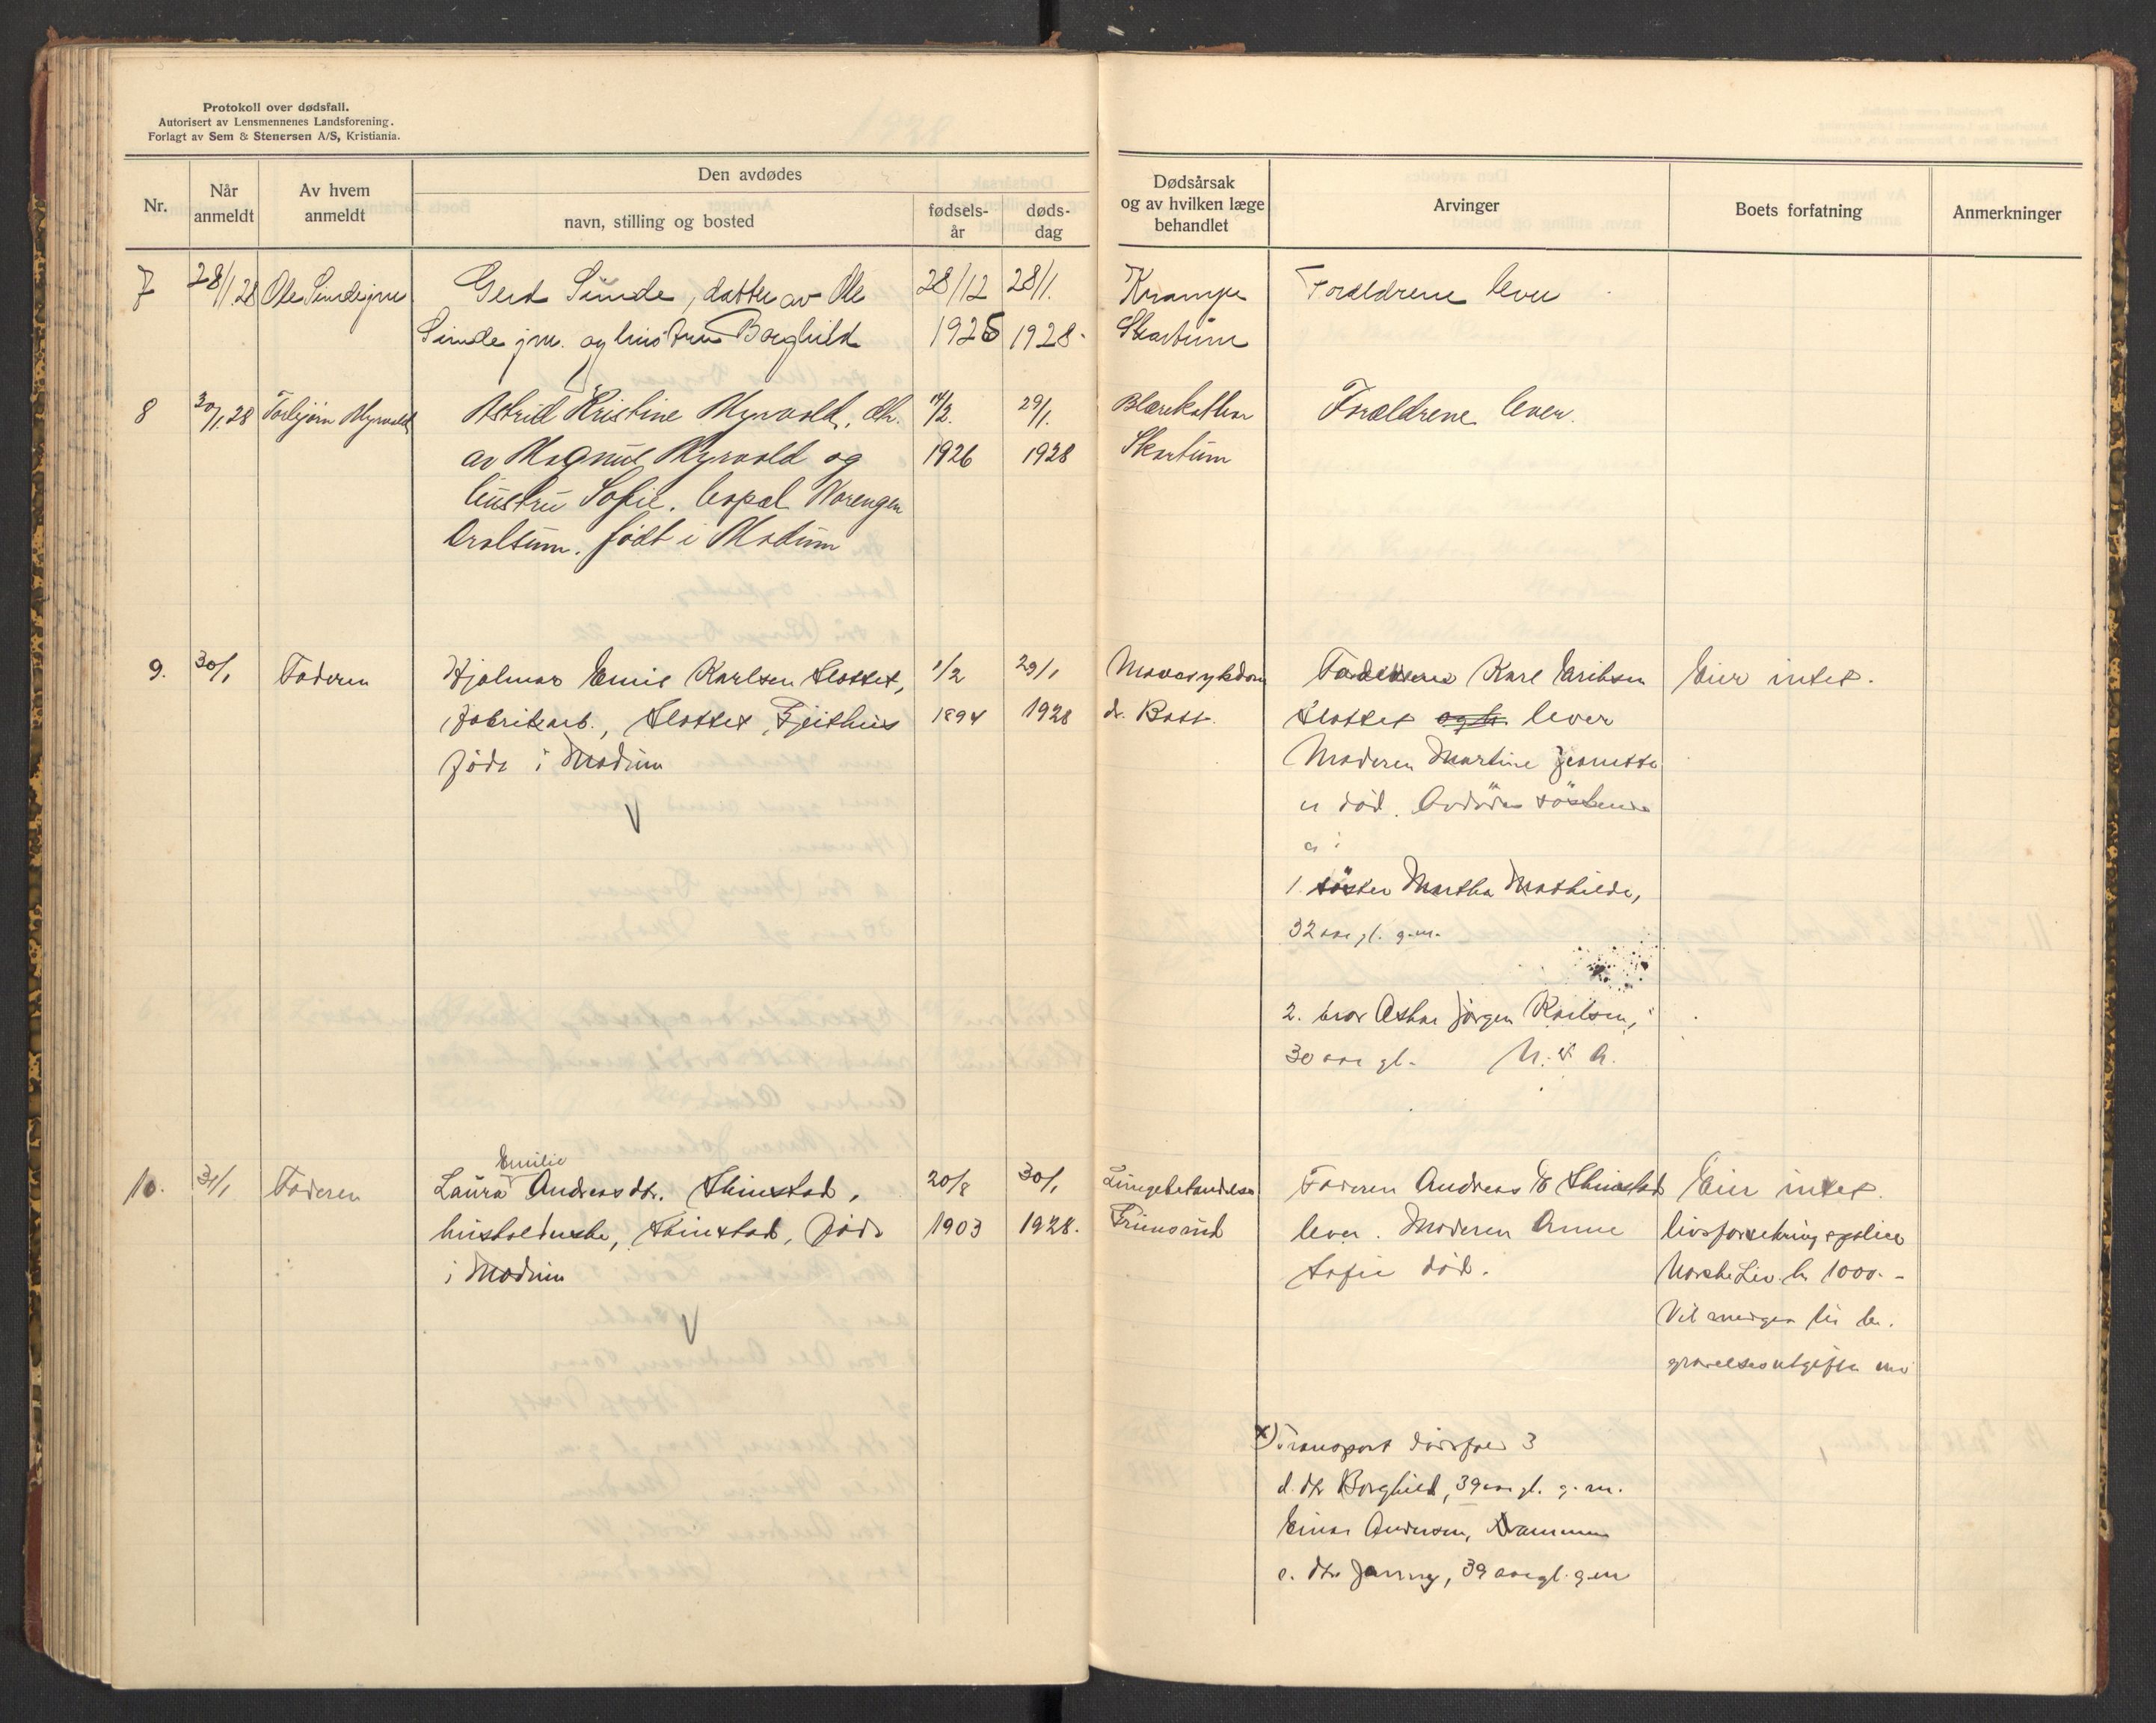 Protokoll over dødsfall.
Autorisert av Lensmennenes Landsforening.
Forlagt av Sem & Stenersen A/S, Kristiania.
Nr.
Når anmeldt
Av hvem anmeldt
Den avdødes
navn, stilling og bosted
fødsels-år
døds-dag
Dødsårsak og av hvilken læge behandlet
Arvinger
Boets forfatning
Anmerkninger
7 28/1.28 Ole Simde jnr Gerd Simde, datter av Ole 28/12 28/1. Krampe Forældrene lever
Simde jnr. og hustru Borghild 1925 1928. Skartum
8 30/1.28 Torbjørn Myrvold Astrid Kristine Myrvold, dtr. 14/2. 29/1. Blærekathar Forældrene lever.
av Magnus Myrvold og 1926 1928 Skartum
hustru Sofie. bopæl Norengen
Drolsum. født i Modum
9. 30/1 Faderen Hjalmar Emil Karlsen Slottet, 1/2 29/1 Mavesykdom Faderen Karl Eriksen Eier intet.
fabrikarb., Slottet, Gjeithus 1894 1928 dr. Bast. Slottet og h. lever
født i Modum
Moderen Martine Jeanette
er død. Avdødes søskende
er:
1. søster Martha Mathilde,
32 aar gl. g.m.
2. bror Oskar Jørgen Karlsen,
30 aar gl.
Emilie
10. 31/1 Faderen Laura Andreasdtr. Skinstad, 20/8 30/1 Lungebetændelse Faderen Andreas Skinstad Eier intet.
husholderske, Skinstad, født 1903 1928. lever. Moderen Anne livsforsekringspolice
i Modum Sofie død. Norske Liv. kr 1000.-
Vil medgaa til be-
gravelsesutgifter
x) Transport dødsfald 3
d. dtr Borghild, 39 aar gl. g.m.
Einar Andersen, Drammen
e. dtr Jenny, 39 aar gl. g.m